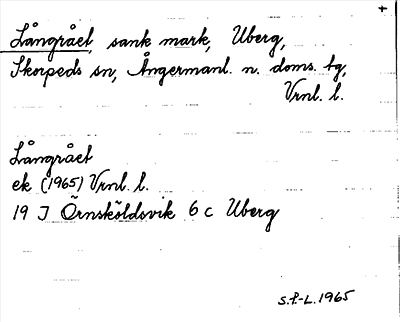 Långråel, sank mark, Uberg,
Skorpeds sn, Ångermanl. n. doms. tg,
Vrnl. l.
Långråel
ek (1965) Vrnl. l.
19 J Örnsköldsvik 6 c Uberg
S.P.-L. 1965